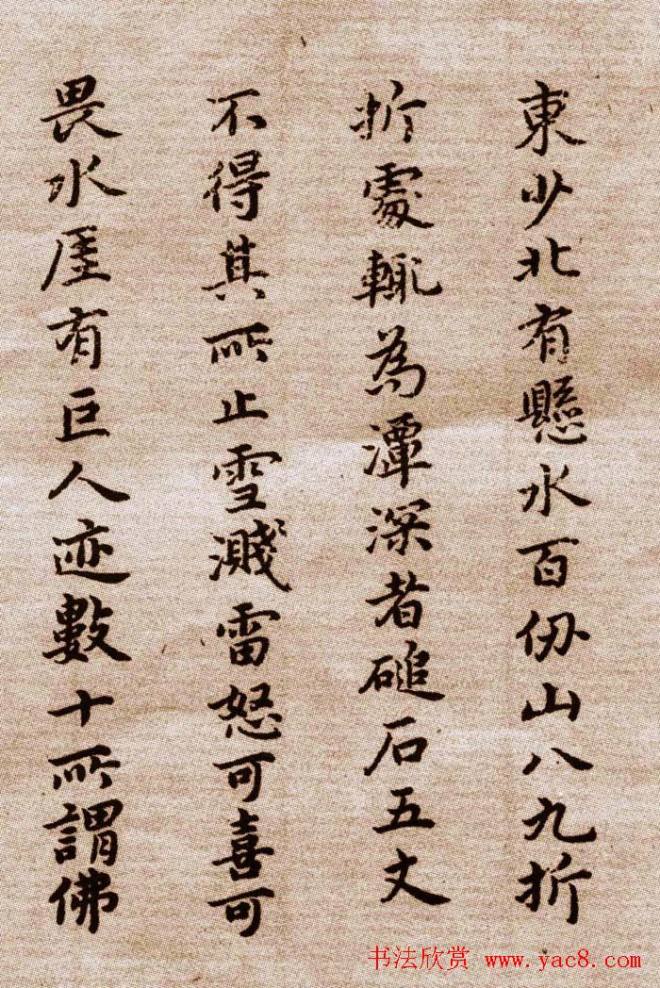 東少北有懸水百仞山八九折
折處輒為潭深者磓石五丈
不得其所止雪濺雷怒可喜可
畏水崖有巨人迹數十所謂佛
书法欣赏 www.yac8.com